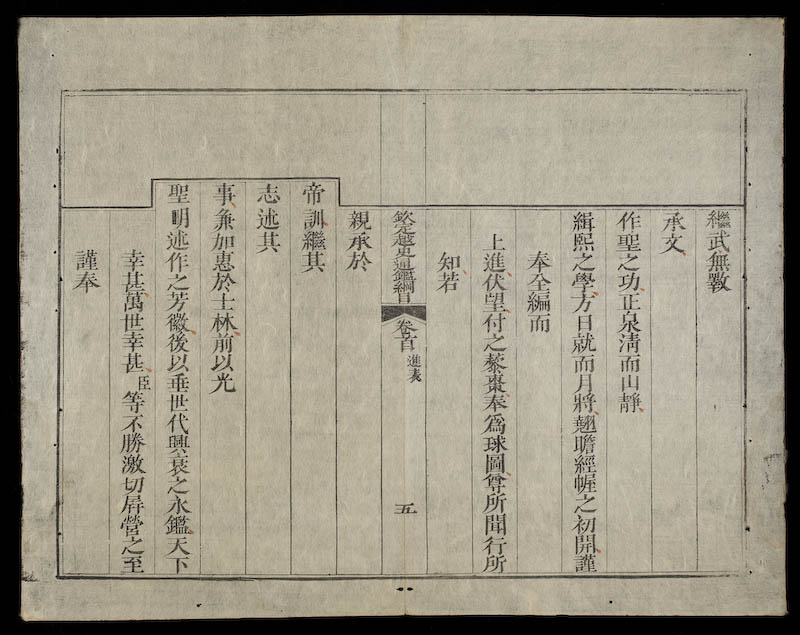 繼武無斁
承文
作聖之功正泉淸而山靜
緝熙之學方日就而月將翹瞻經幄之初開謹
奉全編而
上進伏望付之藜棗奉爲球圖尊所聞行所
知若
欽定越史通鑑綱目 卷首 進表 五
親承於
帝訓繼其
志述其
事兼加惠於士林前以光
聖明述作之芳徽後以垂世代興衰之永鑑天下
幸甚萬世幸甚臣等不勝激切屛營之至
謹奉